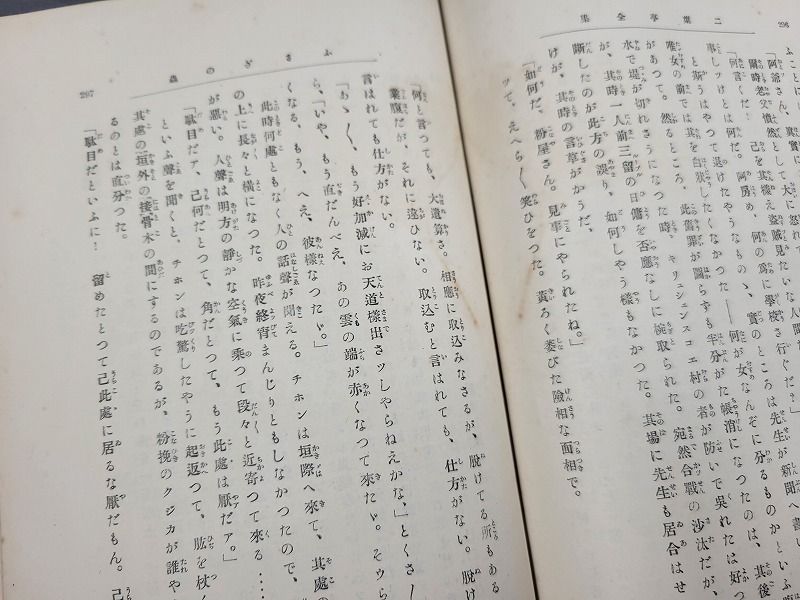 二葉亭全集
296
ふことに、
「阿爺さん、
爾時老父憤然として
「何言くだ！己を其樣え盗賊見たいな人間だ
事しッけとは何だ。阿房め、何の爲に學校さ行ぐだ？」
と斯うはやつて退けたやうなものゝ、實のところは先生が新聞へ書い
唯女の前では其を白状したくなかつた――何が女なんぞに分るものかといふ
があつて。然るところ、此舊罪が圖らずも半分がた帳消になつたのは、其後
水で堤が切れさうになつた時、キリュシェンスコエ村の者が防いで呉れたは好
が、其時一人前三留の日傭を否應なしに捥取られた。宛然合戰の沙汰だが、
斷したのが此方の誤り、如何しやう樣もなかつた。其場に先生も居合はせ
けが、其時の言草がかうだ、
「如何だ、粉屋さん。見事にやられたね。」
ッて、えへら〳〵笑ひをつた。黄ろく萎びた險相な面相で。
ふさぎの蟲
297
「何と言つても、大違算さ。相應に取込みなさるが、脱けてる所もある
業腹だが、それに違ひない。取込むと言はれても、仕方がない。脱け
言はれても仕方がない。
「あゝ〳〵、もう好加減にお天道樣出さッしやらねえかな、」とくさ
ら、「いや、もう直だんべえ、あの雲の端が赤くなつて來たゞ。そウら
くなる、もう、へえ、彼樣なつたゞ。」
此時何處ともなく人の話聲が聞える。チホンは垣際へ來て、其處の
の上に長々と横になつた。昨夜終宵まんじりともしなかつたので、
が惡い。人聲は明方の靜かな空氣に乘つて段々と近寄つて來る……
「駄目だァ、己何だとつて、角だとつて、もう此處は厭だァ。」
といふ聲を聞くと、チホンは吃驚したやうに起返つて、肱を枕
其處の垣外の接骨木の間にするのであるが、粉挽のクジカが誰や
るのとは直分つた。
「駄目だといふに！留めたとつて己此處に居るな厭だもん。己